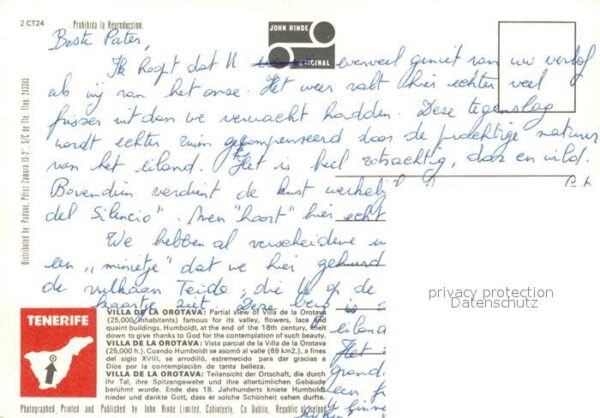 2 CT24
Prohibida la Reproduccion.
JOHN HINDE
ORIGINAL
Beste Pater,
Ik hoopt dat U evenveel geniet van uw verlof
als wij van het onze. Het weer valt hier echter veel
frisser uit dan we verwacht hadden. Deze tegenslag
wordt echter ruim gekompenseerd door de prachtige natuur
van het eiland. Het is heel rotsachtig, daar en wild.
Bovendien verdient de kust werkelij
del Silencio". Men "hoort" hier echt
We hebben al verscheidene
een "minietje" dat we hier gehuurd
de vulkaan Teide, die U op de
kaartje ziet. Deze berg is
eiland
Het
grand
een
Distributed by: Padane, Pérez Zamora
privacy protection
Datenschutz
TENERIFE
VILLA DE LA OROTAVA: Partial view of Villa de la Orotava
(25,000 inhabitants) famous for its valley, flowers, lace and
quaint buildings, Humboldt, at the end of the 18th century, knelt
down to give thanks to God for the contemplation of such beauty.
VILLA DE LA OROTAVA: Vista parcial de la Villa de la Orotava
(25,000 h.). Cuando Humboldt se asomó al valle (69 km2.), a fines
del siglo XVIII, se arrodilló, estremecido para dar gracias a
Dios por la contemplación de tanta belleza.
VILLA DE LA OROTAVA: Teilansicht der Ortschaft, die durch
ihr Tal, ihre Spitzengewebe und ihre altertümlichen Gebäude
berühmt wurde. Ende des 18. Jahrhunderts kniete Humboldt
nieder und dankte Gott, dass er solche Schönheit sehen durfte.
Photographed, Printed and Published by John Hinde Limited, Cabinteely, Co Dublin, Republic of Ireland